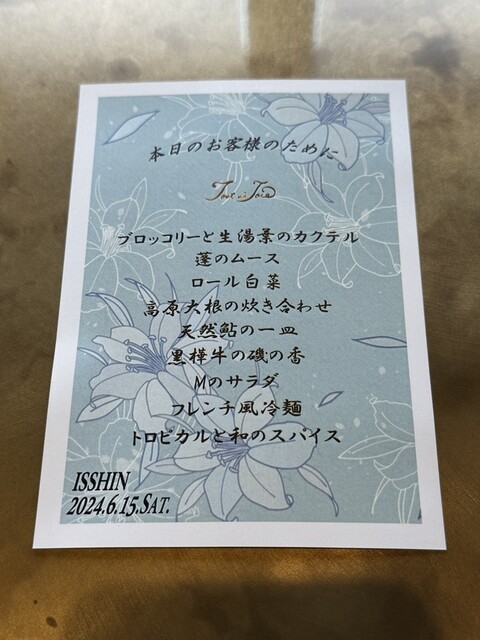 本日のお客様のために
ブロッコリーと生湯葉のカクテル
蓬のムース
ロール白菜
高原大根の炊き合わせ
天然鮎の一皿
黒樺牛の磯の香
Mのサラダ
フレンチ風冷麺
トロピカルと和のスパイス
ISSHIN
2024.6.15.SAT.